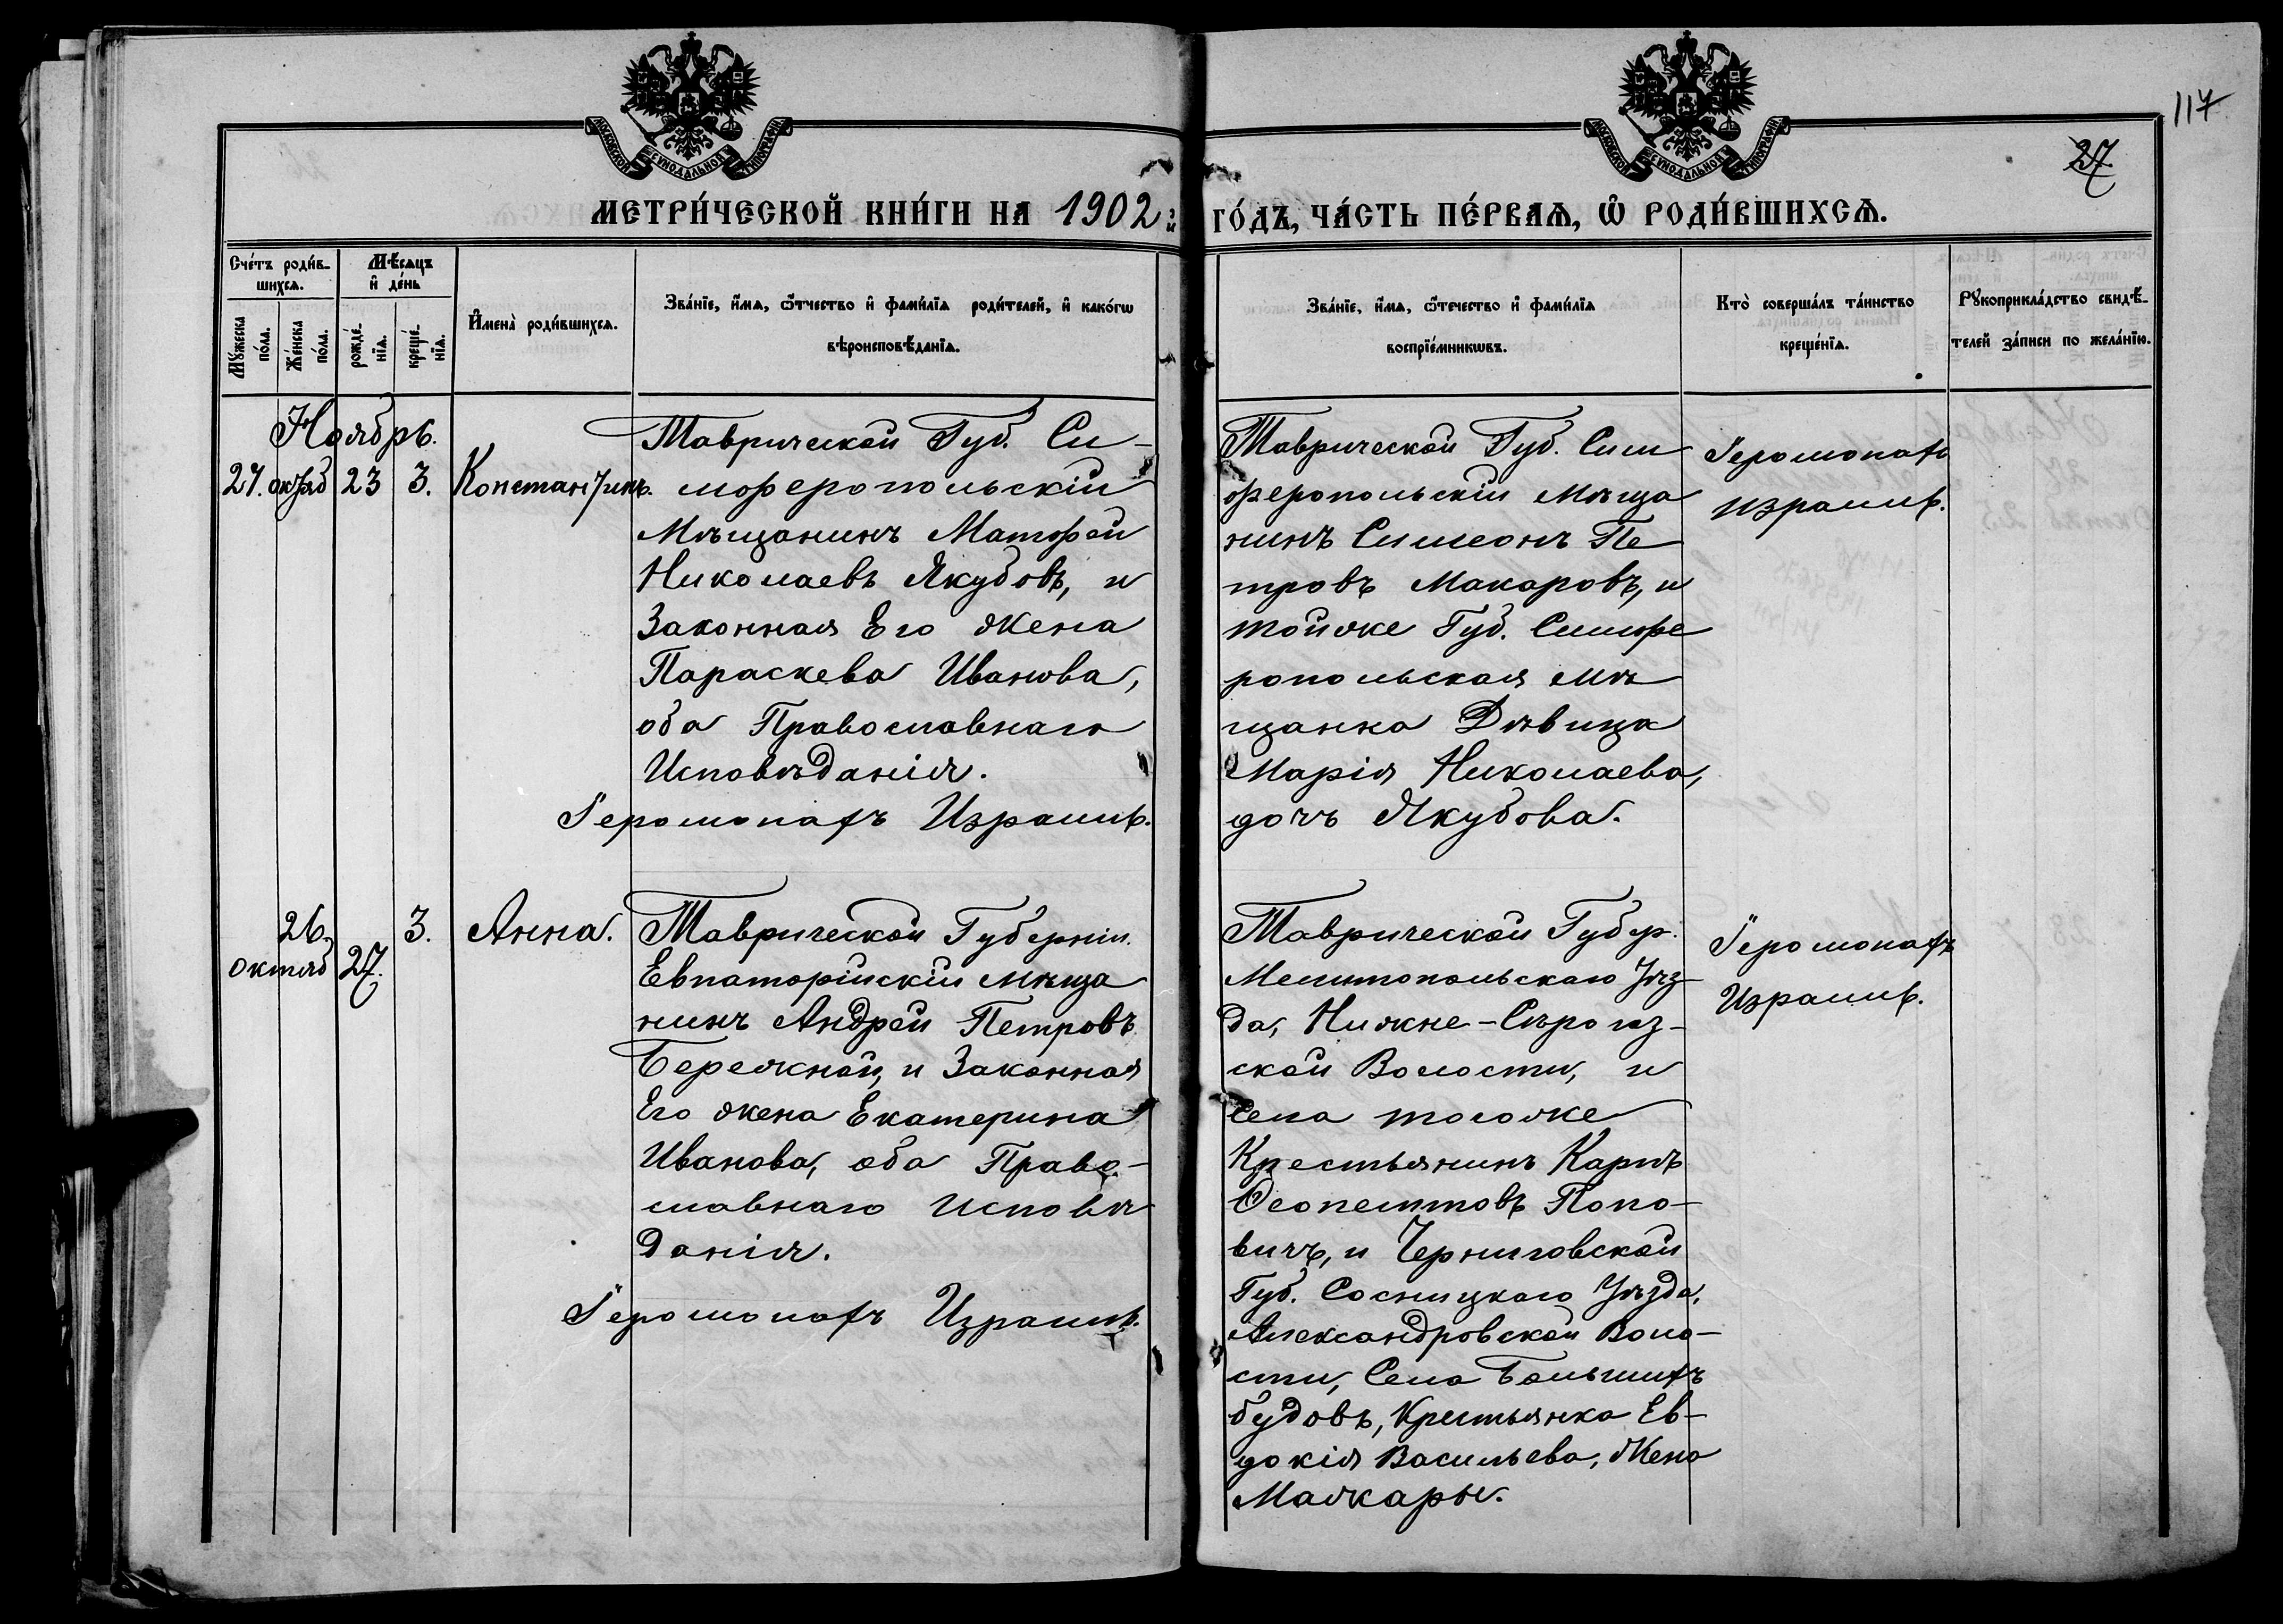 117
27
МОСКОВСКОЙ СУНОДАЛЬНОЙ ТИПОГРАФІИ
МОСКОВСКОЙ СУНОДАЛЬНОЙ ТИПОГРАФІИ
МЕТРИ́ЧЕСКОЙ КНИ́ГИ НА 1902й ГО́ДЪ, ЧА́СТЬ ПЕ́РВАѦ, Ѡ РОДИ́ВШИХСѦ.
Сче́тъ роди́в-
шихсѧ.
Мꙋ́жеска по́ла.
Же́нска по́ла.
Мѣ́сѧцъ
и҆ де́нь
рожде́-
нїѧ.
креще́-
нїѧ.
И҆мена̀ роди́вшихсѧ.
Зва́нїе, и҆́мѧ, ѻ҆́тчество и҆ фами́лїѧ роди́телей, и҆ како́гѡ
вѣроисповѣ́данїѧ.
Зва́нїе, и҆́мѧ, ѻ҆́течество и҆ фами́лїѧ
воспрїе́мникѡвъ.
Кто̀ соверша́лъ та́инство
креще́нїѧ.
Рꙋкоприкла́дство свидѣ́-
телей за́писи по жела́нїю.
Ноябрь.
27. октяб 23 3. Константинъ.
Таврической Губ. Си-
мферопольскій
Мѣщанинъ Матфей
Николаевъ Якубовъ, и
Законная Его Жена
Параскева Иванова,
оба Православнаго
Исповѣданія.
Іеромонахъ Израиль.
Таврической Губ. Сим
феропольскій Мѣща
нинъ Симеонъ Пе
тровъ Макаровъ, и
тойже Губ. Симфе
ропольская Мѣ
щанка Дѣвица
Марія Николаева,
дочь Якубова.
Іеромонахъ
Израиль.
26.
октяб 27. 3. Анна.
Таврической Губерніи
Евпаторійскій Мѣща
нинъ Андрей Петровъ
Бережной, и Законная
Его жена Екатерина
Иванова, оба Право-
славнаго Исповѣ
данія.
Іеромонахъ Израиль.
Таврической Губер.
Мелитопольскаго Уѣз-
да, Нижне-Сѣрогоз-
ской Волости, и
Села тогоже
Крестьянинъ Карпъ
Феопемптовъ Попо-
вичъ, и Черниговской
Губ. Сосницкаго Уѣзда,
Александровской Воло-
сти, Села Большихъ
будовъ, Крестьянка Ев-
докія Васильева, Жена
Мажары.
Іеромонахъ
Израиль.